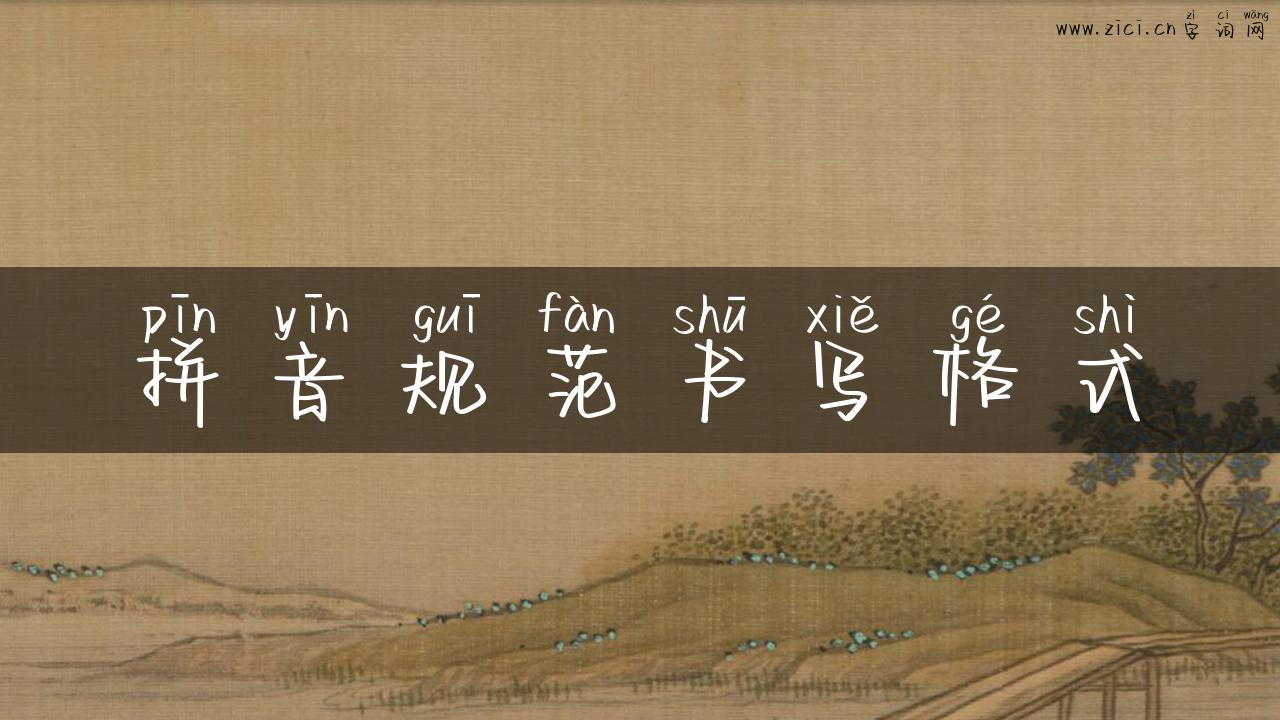 zi ci wǎng
www.zici.cn 字 词 网
pīn yīn guī fàn shū xiě gé shì
拼 音 规 范 书 写 格 式